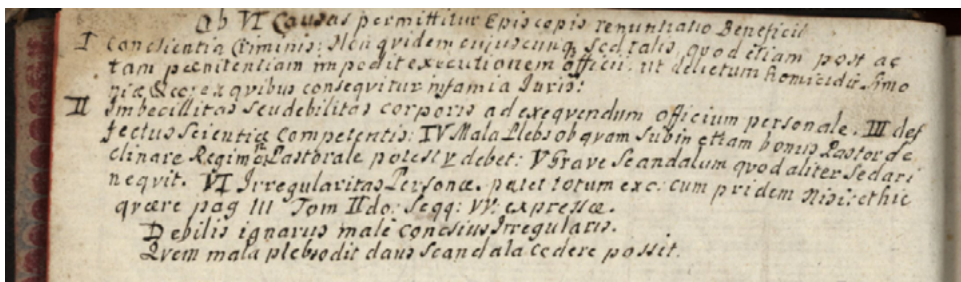 Ob VI Causas permittitur Episcopis renuntiatio Beneficii
I Conscientia Criminis: Non quidem cujuscunq, sed talis, quod etiam post ac
tam pænitentiam impedit executionem officii. ut delictum homicidii. simo
niæ &c: ex qvibus conseqvitur infamia Iuris:
II Imbecillitas seu debilitas corporis ad exeqvendum officium personale. III def
fectus Scientiæ Competentis: IV Mala Plebs ob qvam subin etiam bonus Pastor de
clinare Regimen Pastorale potest y debet: V Grave Scandalum qvod aliter sedari
neqvit. VI Irregularitas Personæ. patet totum exc: cum pridem Nisi: et hic
qvære pag III Tom IIdo: seqq: VV: expressæ.
Debilis ignarus male conscius Irregularis.
Qvem mala plebs odit dans scandala cedere possit.